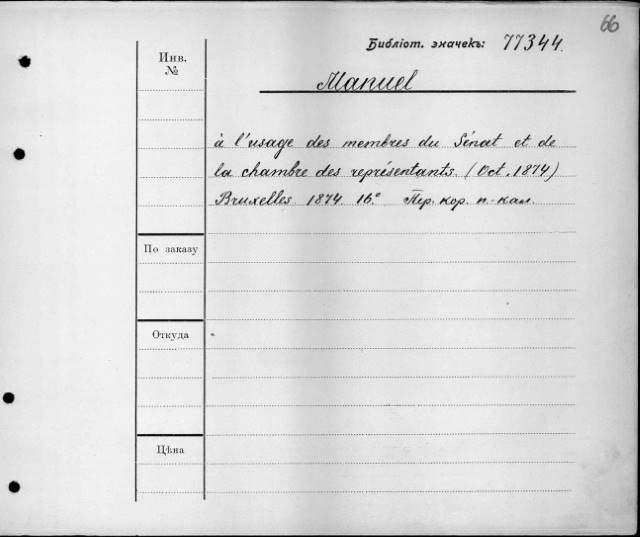 66
Библіот. значекъ: 77344.
Инв.
№
Manuel
à l'usage des membres du Sénat et de
la chambre des représentants. (Oct. 1874)
Bruxelles 1874 16.° Пер. кор. п.-кал.
По заказу
Откуда
Цѣна